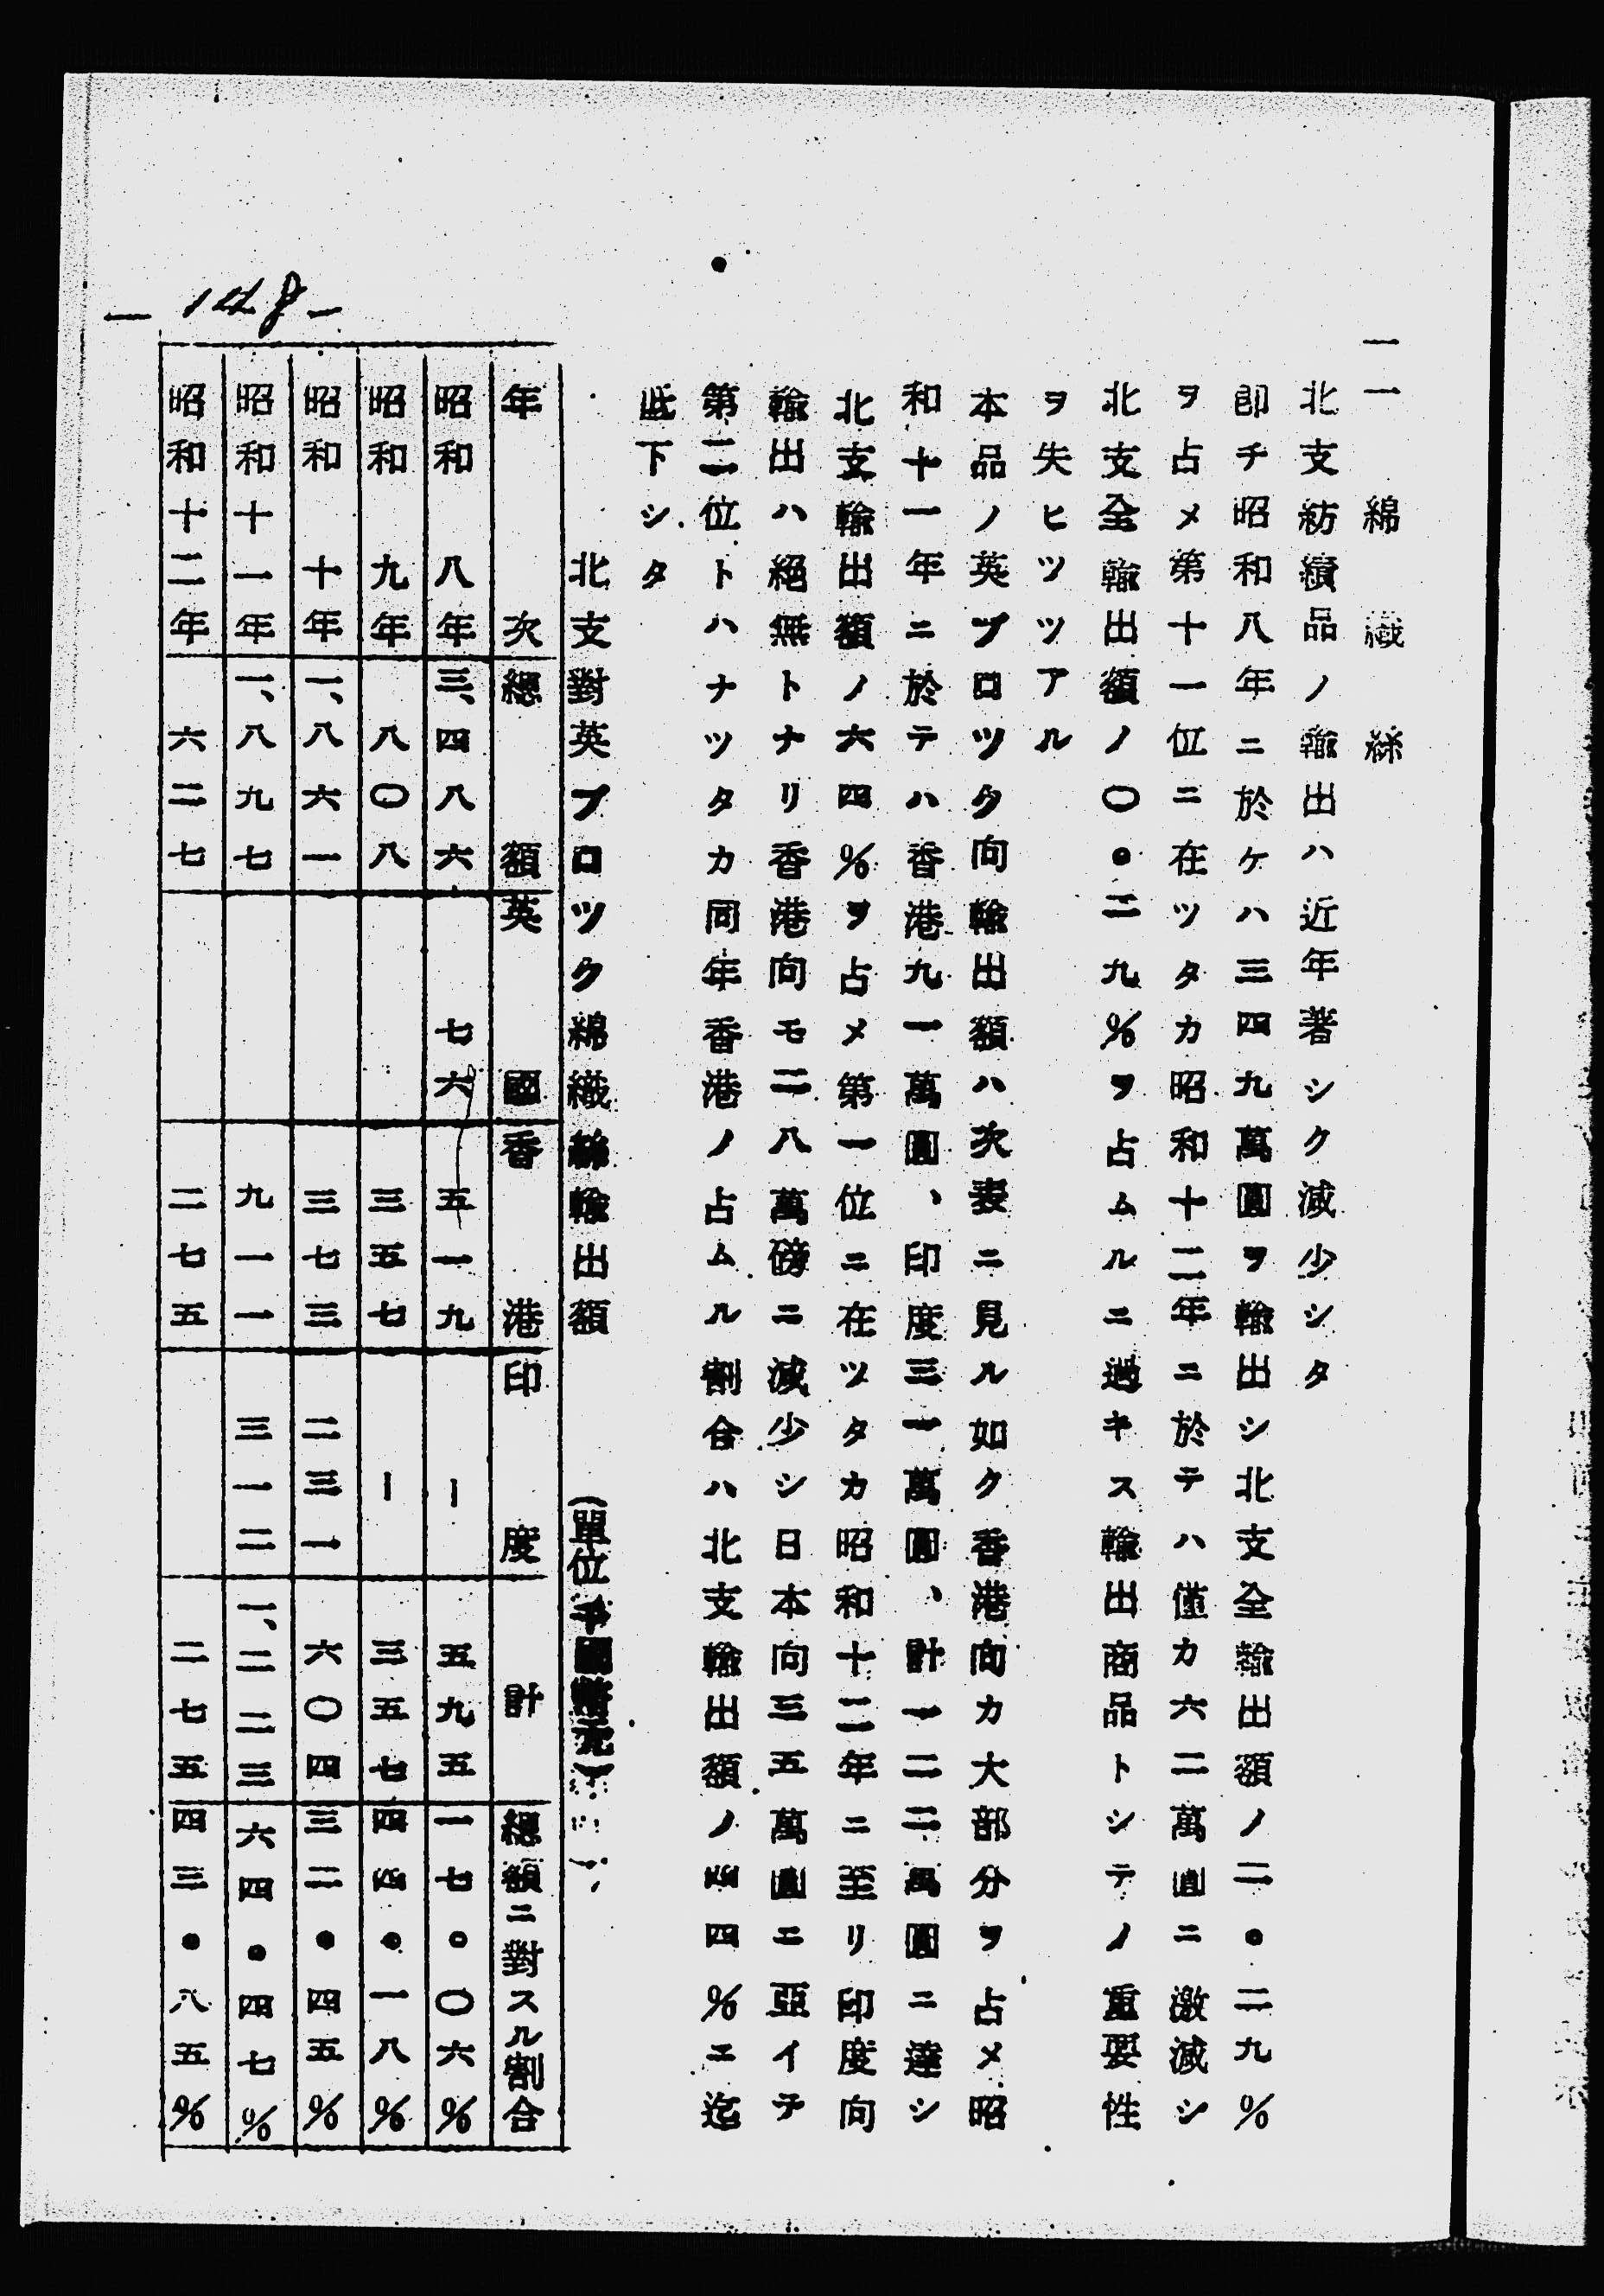 一一　綿　織　絲
北支紡績品ノ輸出ハ近年著シク減少シタ
卽チ昭和八年ニ於ケハ三四九萬圓ヲ輸出シ北支全輸出額ノ二・二九%
ヲ占メ第十一位ニ在ツタカ昭和十二年ニ於テハ僅カ六二萬圓ニ激減シ
北支全輸出額ノ〇・二九%ヲ占ムルニ過キス輸出商品トシテノ重要性
ヲ失ヒツツアル
本品ノ英ブロツク向輸出額ハ次表ニ見ル如ク香港向カ大部分ヲ占メ昭
和十一年ニ於テハ香港九一萬圓、印度三一萬圓、計一二二萬圓ニ達シ
北支輸出額ノ六四%ヲ占メ第一位ニ在ツタカ昭和十二年ニ至リ印度向
輸出ハ絕無トナリ香港向モ二八萬磅ニ減少シ日本向三五萬圓エ亞イテ
第二位トハナツタカ同年香港ノ占ムル割合ハ北支輸出額ノ四四%エ迄
低下シタ
北支對英ブロツク綿織絲輸出額　(單位千國幣元)
年次　總額　英國　香港　印度　計　總額ニ對スル割合
昭和八年　三、四八六　七六　五一九　ー　五九五　一七・〇六%
昭和九年　八〇八　三五七　ー　三五七　四四・一八%
昭和十年　一、八六一　三七三　二三一　六〇四　三二・四五%
昭和十一年　一、八九七　九一一　三一二　一、二二三　六四・四七%
昭和十二年　六二七　二七五　二七五　四三・八五%
— 148 —